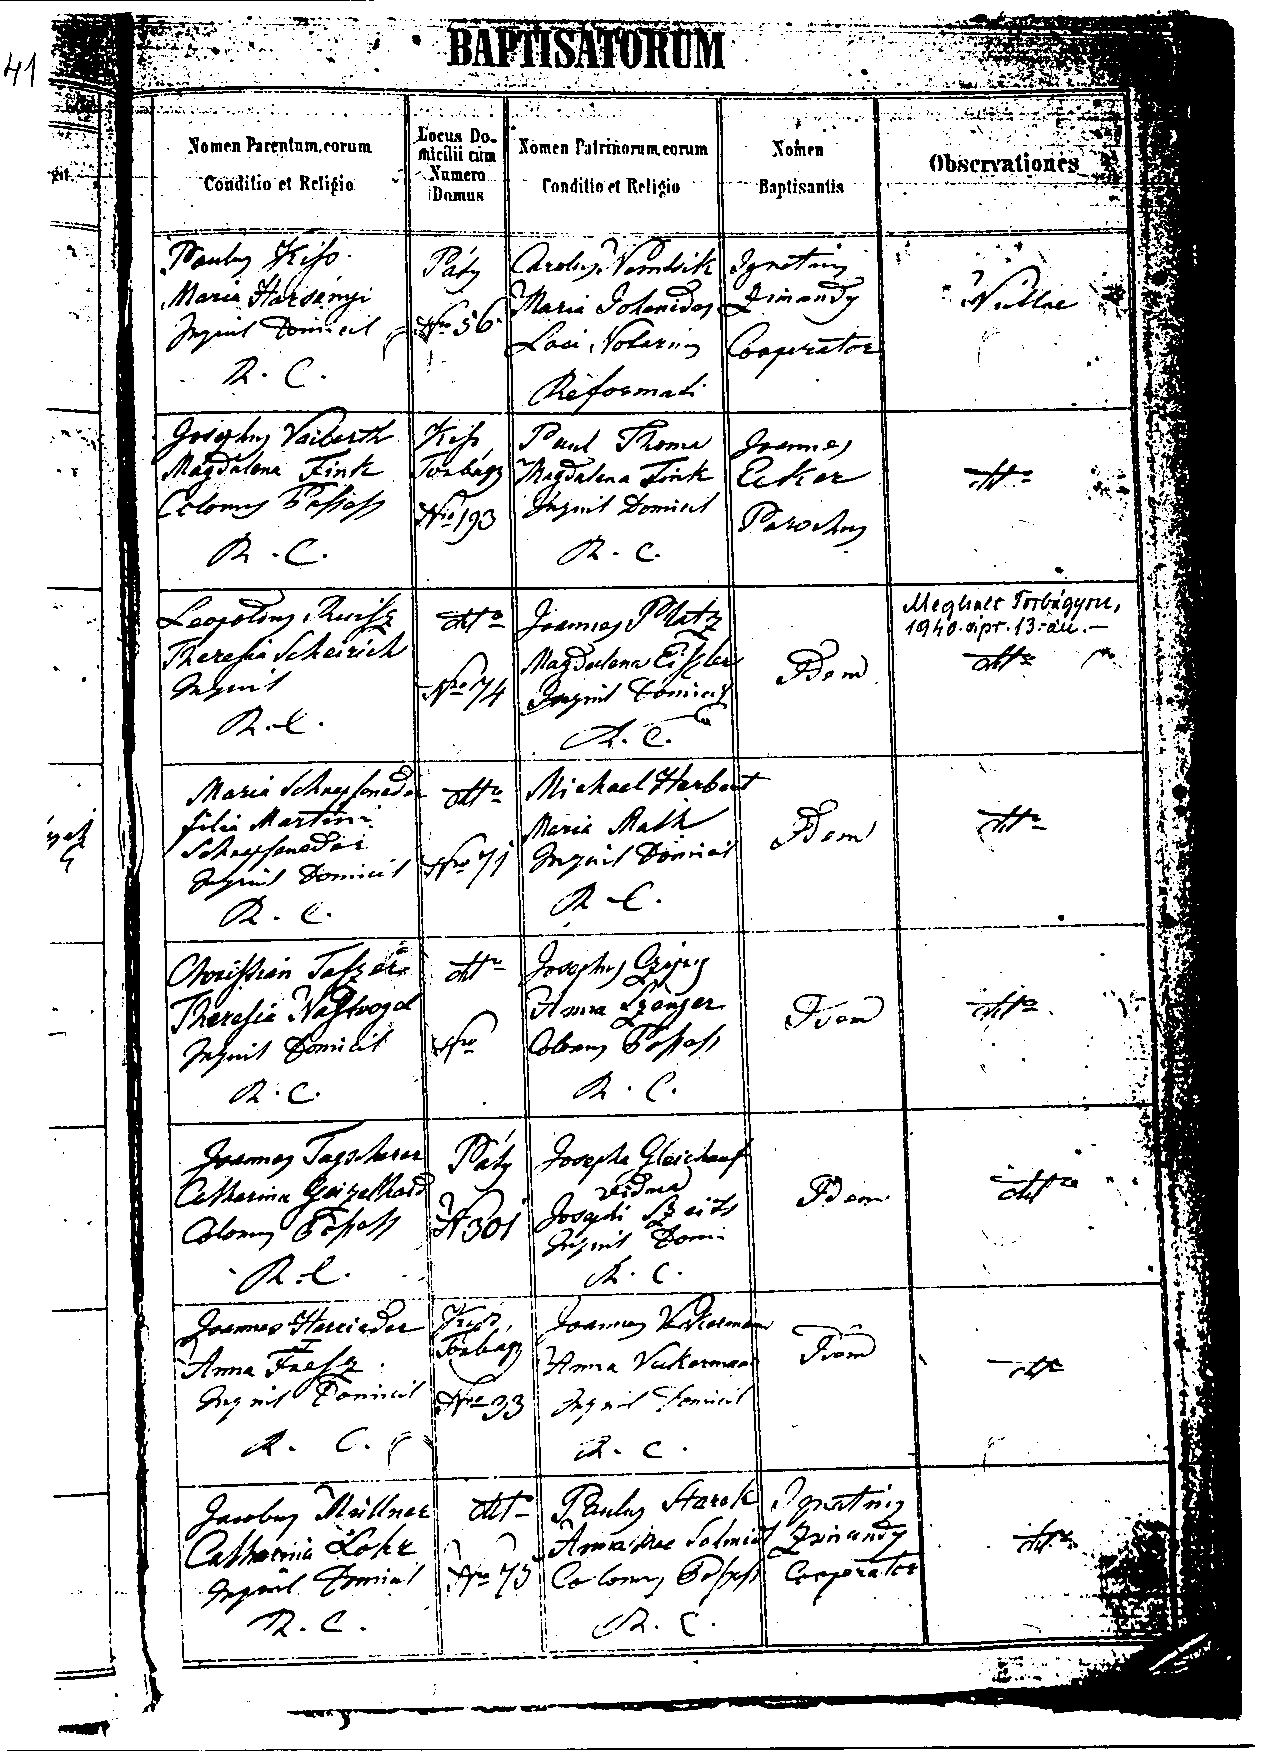 41
BAPTISATORUM
Nomen Parentum, eorum
Conditio et Religio
Locus Do-
micilii cum
Numero
Domus
Nomen Patrinorum, eorum
Conditio et Religio
Nomen
Baptisantis
Observationes
Paulus Kiss
Maria Harsányi
Inquil Domicil
R. C.
Páty
Nro 56
Maria
Loci Notarius
Reformati
Ignatius
Zimandy
Cooperator
Nullae
Josephus
Magdalena Fink
Colonus Possess
R. C.
Kiss
Torbágy
Nro 193
Paul Thoma
Magdalena Fink
Inquil Domicil
R. C.
Joannes
Ecker
Parochus
dtto
Leopoldus
Theresia
Inquil
R. C.
dtto
Nro 74
Joannes Platz
Magdalena Eissler
Inquil Domicil
R. C.
Idem
Meghalt Torbágyon,
1940. ápr. 13-án. -
dtto
Maria
filia Martini
Inquil Domicil
R. C.
dtto
Nro 71
Michael Herbert
Maria
Inquil Domicil
R. C.
Idem
dtto
Christian
Theresia
Inquil Domicil
R. C.
dtto
Nro
Josephus
Anna
Colonus Possess
R. C.
Idem
dtto
Joannes Tagscherer
Catharina
Colonus Possess
R. C.
Páty
N 301
Josepha Gleichauf
vidua
Josephi
Inquil Domi
R. C.
Idem
dtto
Joannes
Anna
Inquil Domicil
R. C.
Kiss
Torbágy
Nro 33
Joannes
Anna
Inquil Domicil
R. C.
Idem
dtto
Jacobus Müllner
Catharina Lohr
Inquil Domicil
R. C.
dtto
Nro 75
Paulus Starck
Anna
Colonus Possess
R. C.
Ignatius
Zimandy
Cooperator
dtto